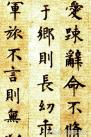 愛踈辭命不
于鄉則長幼
軍旅不言則無